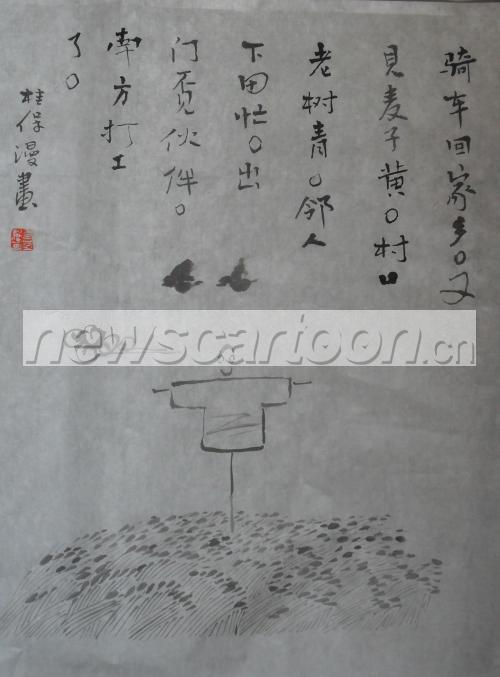 骑车回家乡。又
見麦子黄。村口
老树青。邻人
下田忙。出
门不见伙伴。
南方打工
了。
桂保漫畫
newscartoon.cn